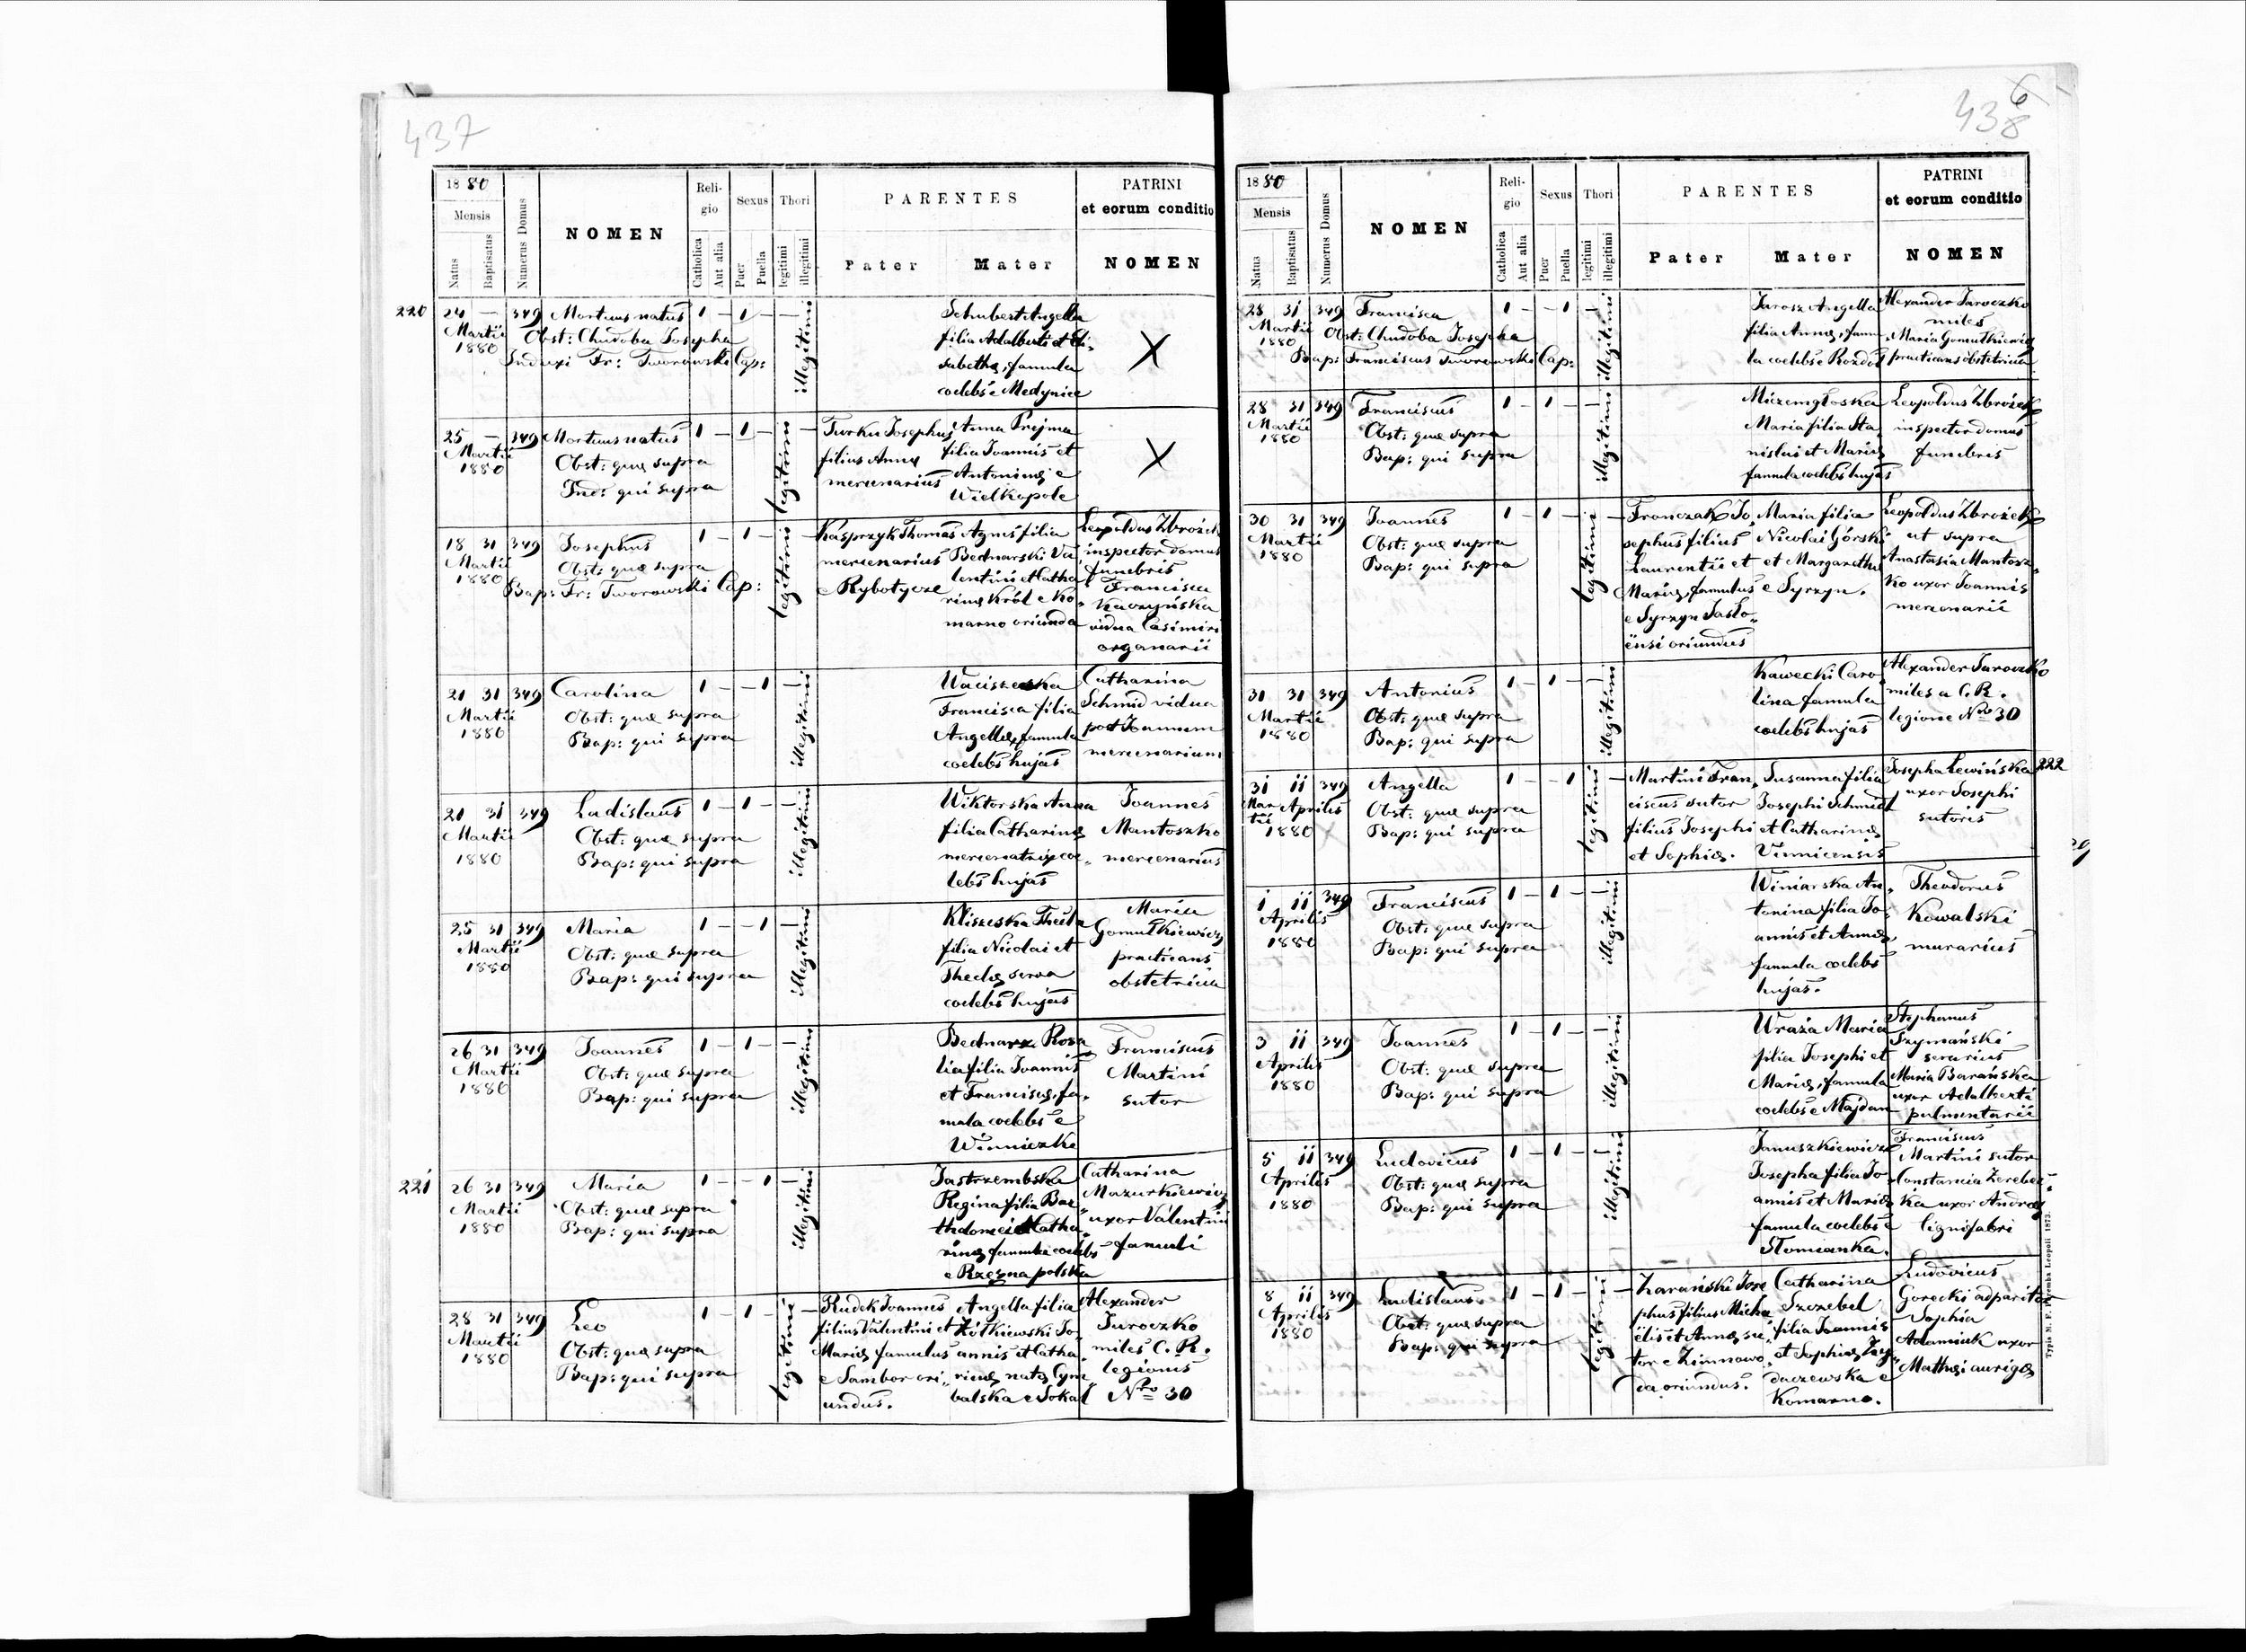 437
18 80
Mensis
Natus
Baptisatus
Numerus Domus
NOMEN
Reli-
gio
Catholica
Aut alia
Sexus
Puer
Puella
Thori
legitimi
illegitimi
PARENTES
Pater
Mater
PATRINI
et eorum conditio
NOMEN
220
24 — 349 Mortuus natus 1 – 1 – –
Martii
1880
Obst: Chudoba Josepha
Induxi Fr: Tworowski Cap:
illegitimi
Schubert Angella
filia Adalberti et Eli-
sabethæ, famula
coelebs e Medynice
X
25 — 349 Mortuus natus 1 – 1 – –
Martii
1880
Obst: quæ supra
Ind: qui supra
legitimi
Turku Josephus
filius Annæ
mercenarius
Anna Prejma
filia Joannis et
Antoninæ e
Wielkopole
X
18 31 349 Josephus 1 – 1 – –
Martii
1880
Obst: quæ supra
Bap: Fr: Tworowski Cap:
legitimi
Kasprzyk Thomas
mercenarius
e Rybotycze
Agnes filia
Bednarski Va
lentini et Catha
rinæ Król e Ko-
marno oriunda
Leopoldus Zbrożek
inspector domus
funebris
Francisca
Kaczyńska
vidua Casimiri
organarii
21 31 349 Carolina 1 – – 1 –
Martii
1880
Obst: quæ supra
Bap: qui supra
illegitimi
Francisca filia
Angellæ, famula
coelebs hujas
Catharina
Schmid vidua
post Joannem
mercenarium
21 31 349 Ladislaus 1 – 1 – –
Martii
1880
Obst: quæ supra
Bap: qui supra
illegitimi
Wiktorska Anna
filia Catharinæ
mercenatrix coe-
lebs hujas
Joannes
Mantoszko
mercenarius
25 31 349 Maria 1 – – 1 –
Martii
1880
Obst: quæ supra
Bap: qui supra
illegitimi
Kliszeska Thecla
filia Nicolai et
Theclæ serva
coelebs hujas
Maria
Gomułkiewicz
practicans
obstetricia
26 31 349 Joannes 1 – 1 – –
Martii
1880
Obst: quæ supra
Bap: qui supra
illegitimi
Bednarz Rosa
lia filia Joannis
et Franciscæ, fa-
mula coelebs e
Winniczki
Franciscus
Martini
sutor
221
26 31 349 Maria 1 – – 1 –
Martii
1880
Obst: quæ supra
Bap: qui supra
illegitimi
Jastrzembska
Regina filia Bar-
tholomei et Catha-
rinæ famula coelebs
e Rzęsna polska
Catharina
Mazurkiewicz
uxor Valentini
famuli
28 31 349 Leo 1 – 1 – –
Martii
1880
Obst: quæ supra
Bap: qui supra
legitimi
Rudek Joannes
filius Valentini et
Mariæ famulus
e Sambor ori-
undus.
Angella filia
Żółkiewski Jo-
annis et Catha-
rinæ natæ Cym
balska e Sokal
Alexander
Juroczko
miles C. R.
legionis
Nro 30
438
6
18 80
Mensis
Natus
Baptisatus
Numerus Domus
NOMEN
Reli-
gio
Catholica
Aut alia
Sexus
Puer
Puella
Thori
legitimi
illegitimi
PARENTES
Pater
Mater
PATRINI
et eorum conditio
NOMEN
28 31 349 Francisca 1 – – 1 –
Martii
1880
Obst: Chudoba Josepha
Bap: Franciscus Tworowski Cap:
illegitimi
Jarosz Angella
filia Annæ, famu
la coelebs e Rozdol
Alexander Juroczko
miles
Maria Gomułkiewicz
practicans obstetricia
28 31 349 Franciscus 1 – 1 – –
Martii
1880
Obst: quæ supra
Bap: qui supra
illegitimi
Maria filia Sta-
nislai et Mariæ
famula coelebs hujas
Leopoldus Zbrożek
inspector domus
funebris
30 31 349 Joannes 1 – 1 – –
Martii
1880
Obst: quæ supra
Bap: qui supra
legitimi
Fronczak Jo-
sephus filius
Laurentii et
Mariæ, famulus
e Syrzyn Jasło-
ensi oriundus
Maria filia
Nicolai Górski
et Margarethæ
e Syrzyn.
Leopoldus Zbrożek
ut supra
Anastasia Mantosz-
ko uxor Joannis
mercenarii
31 31 349 Antonius 1 – 1 – –
Martii
1880
Obst: quæ supra
Bap: qui supra
illegitimi
Kawecki Caro
lina famula
coelebs hujas
Alexander Juroczko
miles a C. R.
legione Nro 30
31 11 349 Angella 1 – – 1 –
Mar Aprilis
tii
1880
Obst: quæ supra
Bap: qui supra
legitimi
Martini Fran-
ciscus sutor
filius Josephi
et Sophiæ.
Susanna filia
Josephi Schmidt
et Catharinæ
Vinnicensis
Josepha Lewińska
uxor Josephi
sutoris
222
1 11 349 Franciscus 1 – 1 – –
Aprilis
1880
Obst: quæ supra
Bap: qui supra
illegitimi
Winiarska An-
tonina filia Jo-
annis et Annæ,
famula coelebs
hujas.
Theodorus
Kowalski
murarius
3 11 349 Joannes 1 – 1 – –
Aprilis
1880
Obst: quæ supra
Bap: qui supra
illegitimi
Uraża Maria
filia Josephi et
Mariæ, famula
coelebs e Majdan
Stephanus
Szymański
serarius
Maria Barańska
uxor Adalberti
pulmentarii
5 11 349 Ludovicus 1 – 1 – –
Aprilis
1880
Obst: quæ supra
Bap: qui supra
illegitimi
Januszkiewicz
Josepha filia Jo-
annis et Mariæ
famula coelebs e
Słomianka.
Franciscus
Martini sutor
Constancia Zerebec-
ka uxor Andreæ
lignifabri
8 11 349 Ladislaus 1 – 1 – –
Aprilis
1880
Obst: quæ supra
Bap: qui supra
legitimi
Zarański Jose
phus filius Micha
elis et Annæ su-
tor e Zimnowo-
da oriundus.
Catharina
Szczebel
filia Joannis
et Sophiæ Zay-
daczewska e
Komarno.
Ludovicus
Gorecki adparitor
Sophia
Adamiak uxor
Mathæi aurigæ